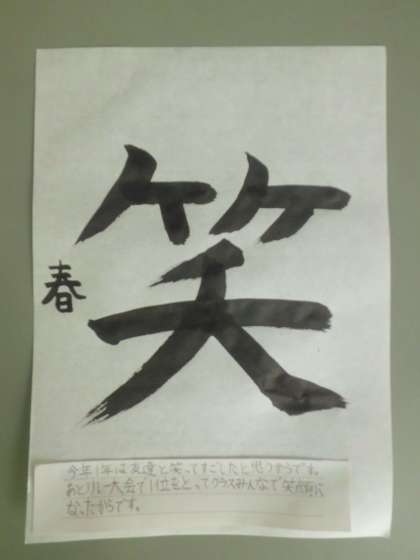 笑
春
今年1年は友達と笑ってすごしたと思うからです。
あとリレー大会で1位をとってクラスみんなで笑顔に
なったからです。